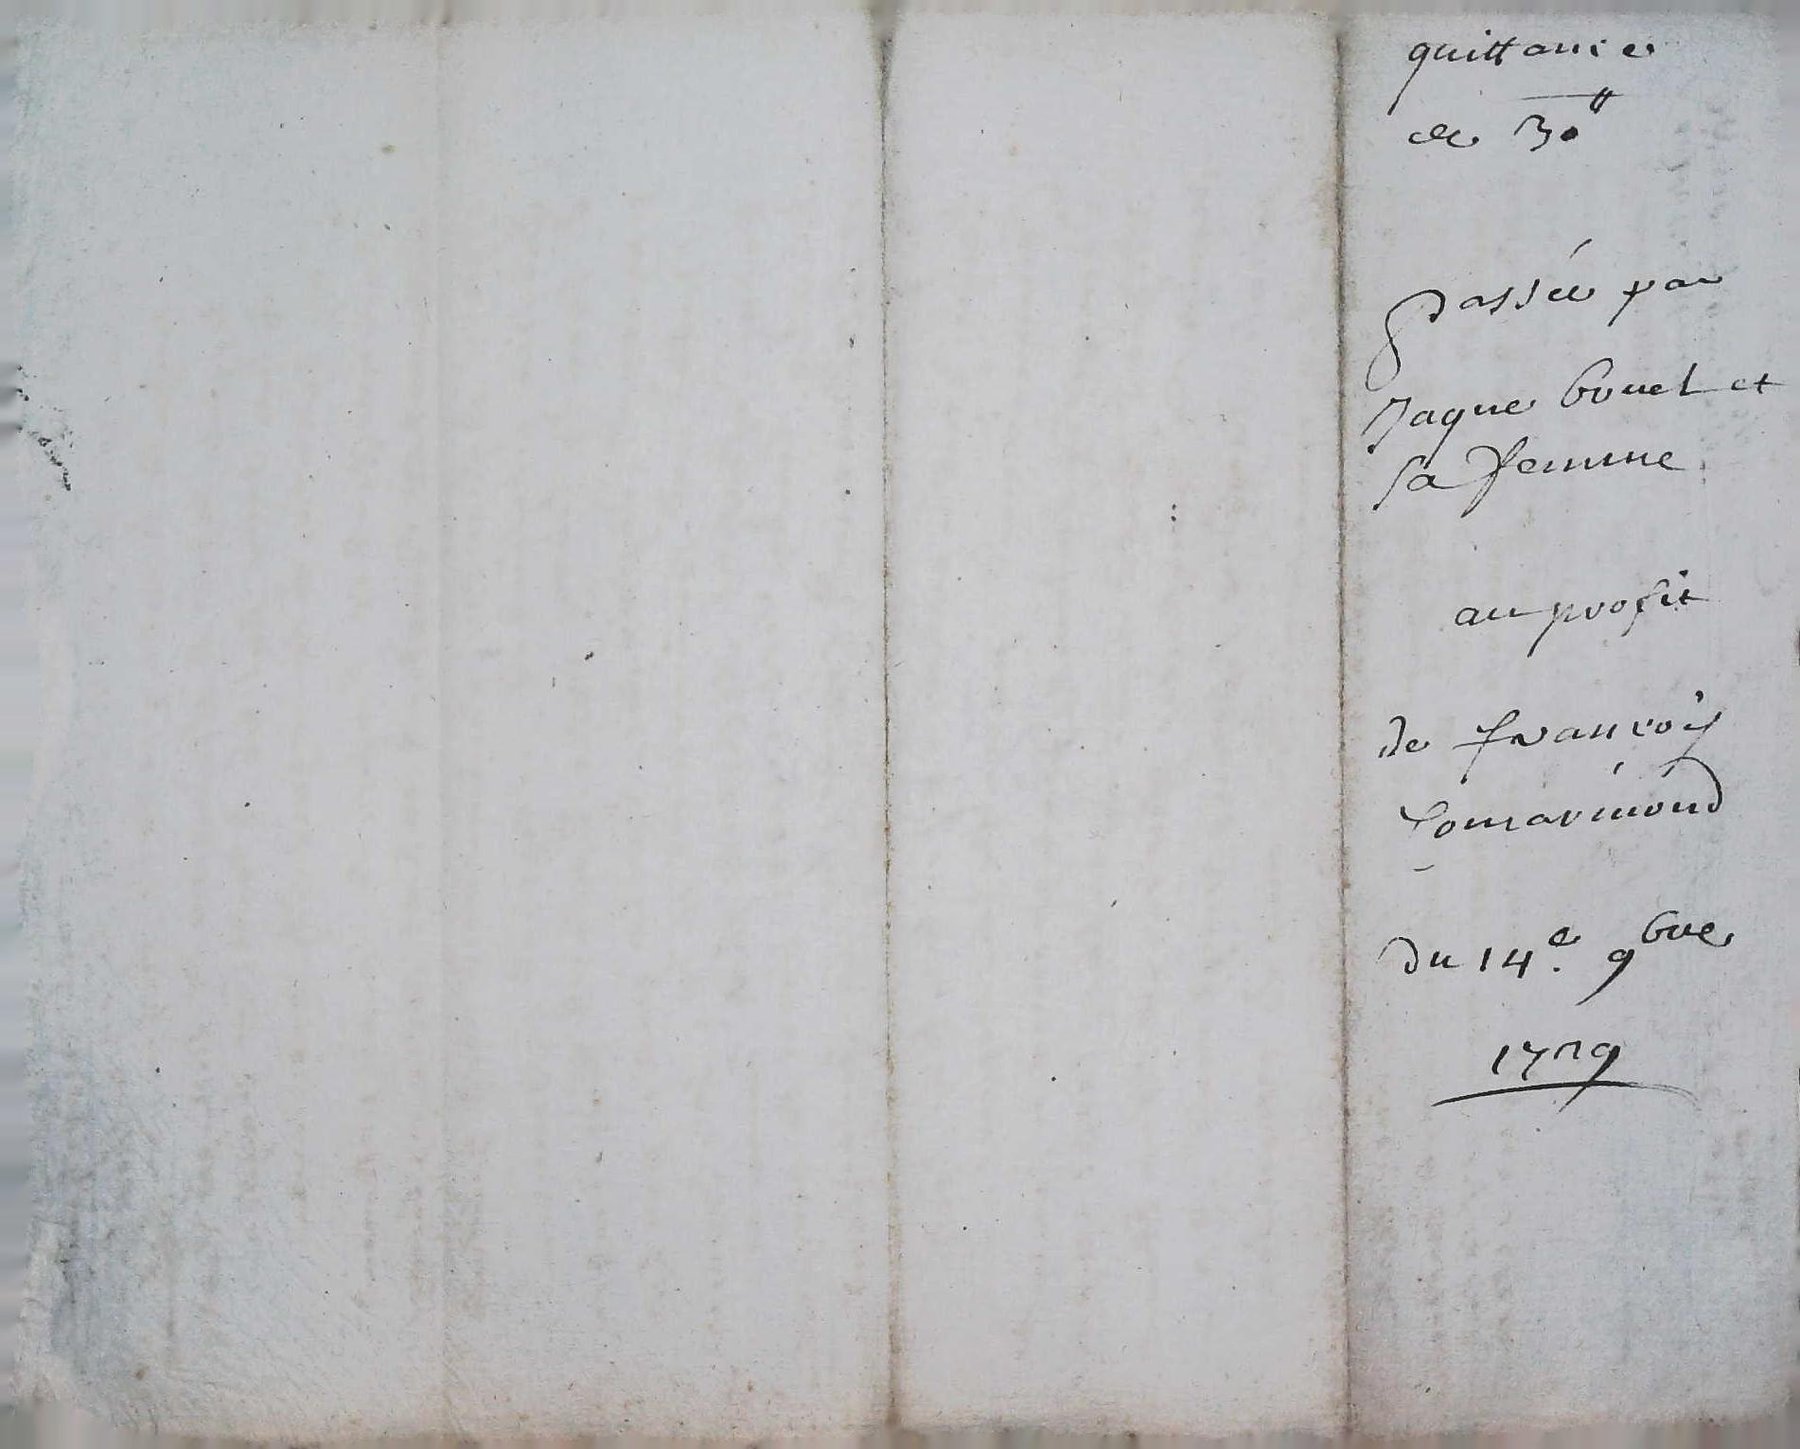 quittance
de 30ᵗᵗ
passée par
Jaque bouet et
sa femme
au profit
de françois
du 14e. 9bre
1729